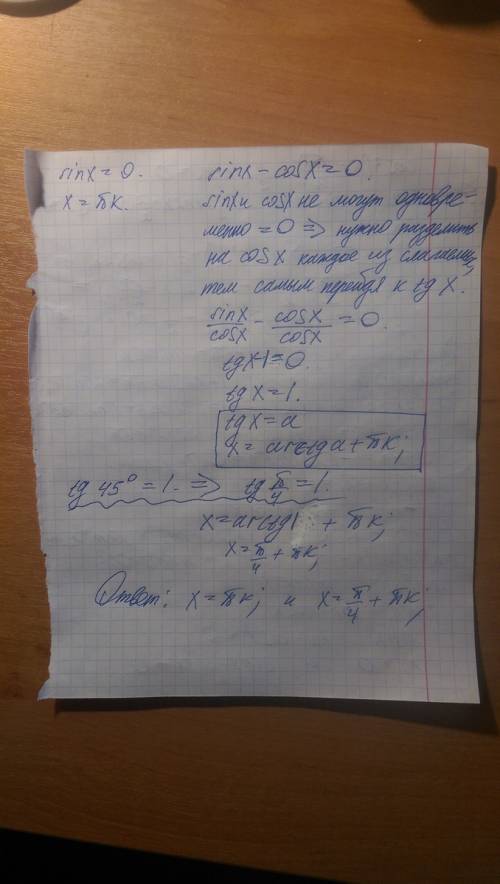 sinx = 0.
x = πк.
sinx - cosx = 0.
sinx и cosx не могут одновре-
менно = 0 => нужно разделить
на cosx каждое из слагаемых,
тем самым перейдя к tg x.
sinx/cosx - cosx/cosx = 0.
tgx-1=0.
tgx = 1.
tgx = a
x = arctga + πк;
tg 45° = 1. => tg π/4 = 1.
x = arctg1 + πк;
x = π/4 + πк;
Ответ: x = πк; и x = π/4 + πк;